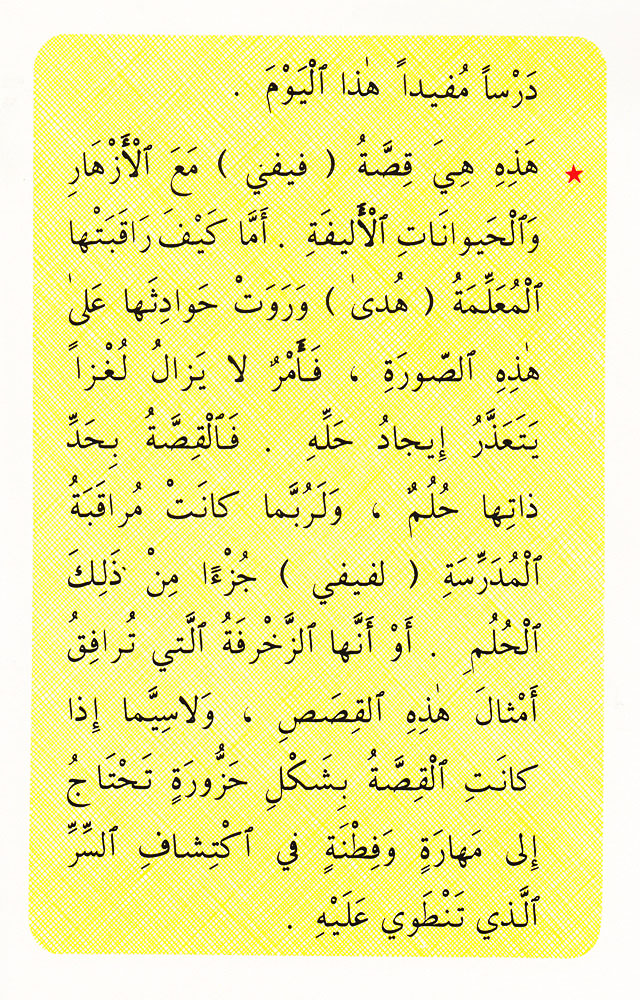 دَرْساً مُفيداً هٰذا ٱلْيَوْمَ .
هَذِهِ هِيَ قِصَّةُ ( فيفي ) مَعَ ٱلْأَزْهَارِ
وَٱلْحَيوانَاتِ ٱلْأَليفَةِ . أَمَّا كَيْفَ رَاقَبَتْها
ٱلْمُعَلِّمَةُ ( هُدىٰ ) وَرَوَتْ حَوادِثَها عَلىٰ
هٰذِهِ ٱلصّورَةِ ، فَأَمْرٌ لا يَزالُ لُغْزاً
يَتَعَذَّرُ إِيجادُ حَلِّهِ . فَٱلْقِصَّةُ بِحَدِّ
ذاتِها حُلُمٌ ، وَلَرُبَّما كانَتْ مُراقَبَةُ
ٱلْمُدَرِّسَةِ ( لفيفي ) جُزْءًا مِنْ ذَلِكَ
ٱلْحُلُمِ . أَوْ أَنَّها ٱلزَّخْرفَةُ ٱلَّتي تُرافِقُ
أَمْثالَ هٰذِهِ ٱلقِصَصِ ، وَلاسِيَّما إِذا
كانَتِ ٱلْقِصَّةُ بِشَكْلِ حَزُّورَةٍ تَحْتَاجُ
إِلى مَهارَةٍ وَفِطْنَةٍ في ٱكْتِشافِ ٱلسِّرِّ
ٱلَّذي تَنْطَوي عَلَيْهِ .